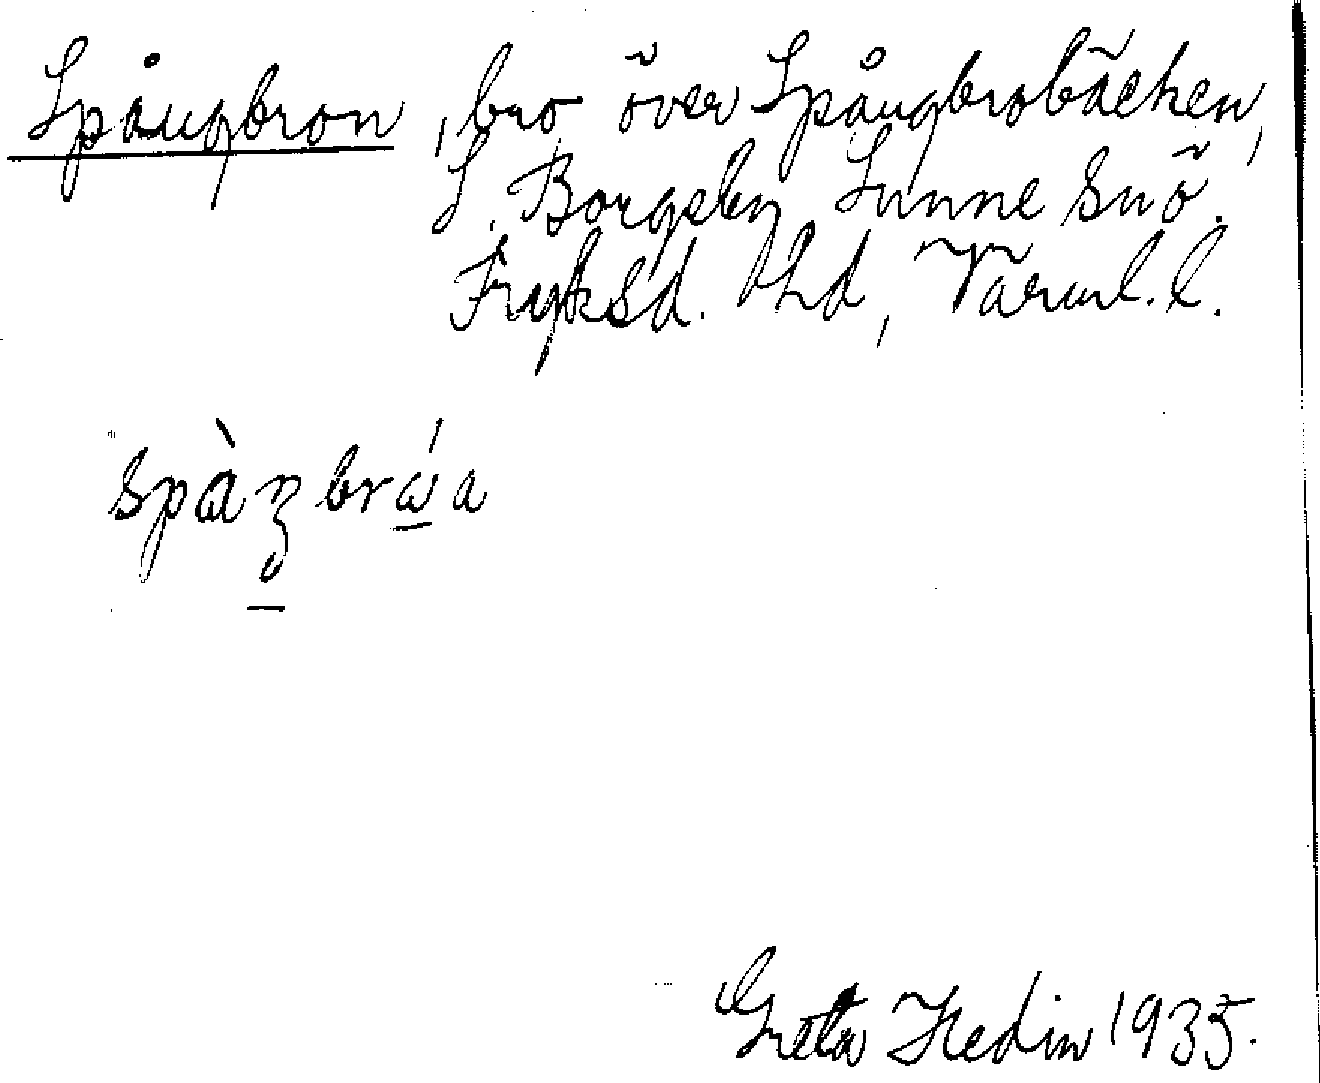 Spångbron, bro över Spångbrobäcken,
S. Borgeby Sunne snö.
Fryksd. hd, Värml. l.
spàŋbrώa
Greta Hedin 1935.